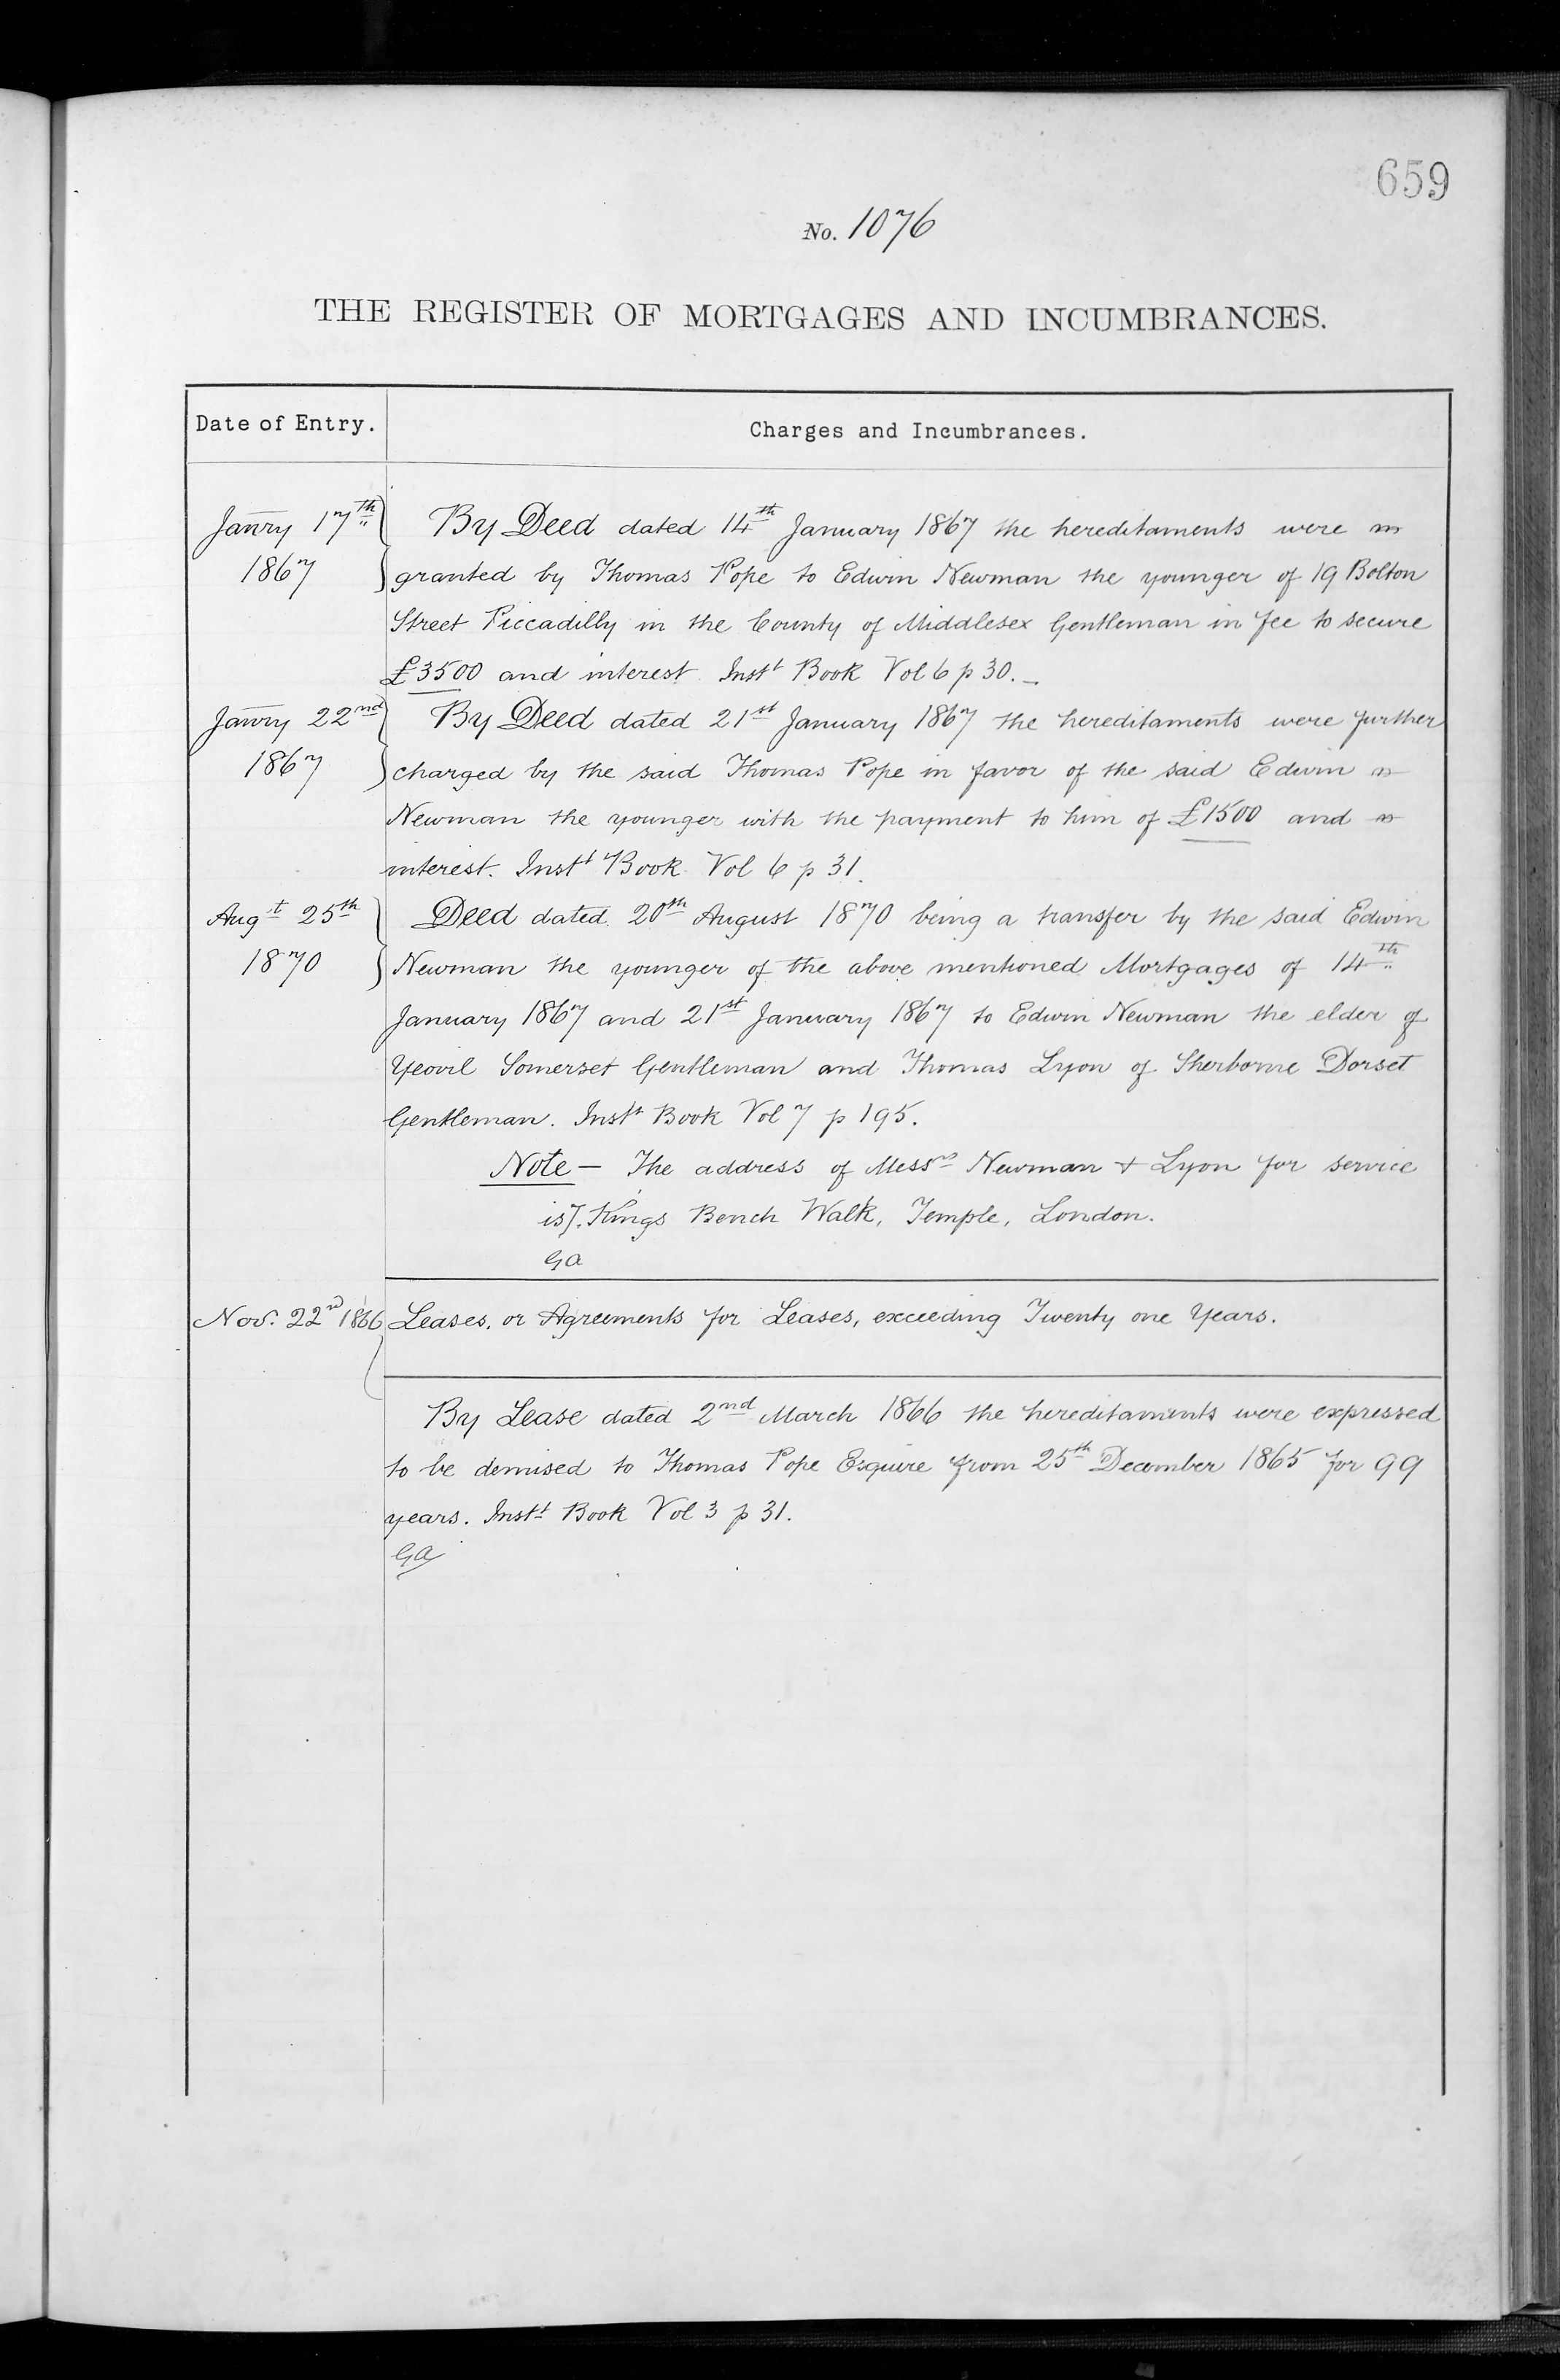 659
No. 1076
THE REGISTER OF MORTGAGES AND INCUMBRANCES.
Date of Entry.
Charges and Incumbrances.
Janry 17th By Deed dated 14th January 1867 the hereditaments were
1867 granted by Thomas Pope to Edwin Newman the younger of 19 Bolton
Street Piccadilly in the County of Middlesex Gentleman in fee to secure
£3500 and interest. Instt Book Vol 6 p 30.
Janry 22nd By Deed dated 21st January 1867 the hereditaments were further
1867 charged by the said Thomas Pope in favor of the said Edwin
Newman the younger with the payment to him of £1500 and
interest. Instt Book Vol 6 p 31.
Augt 25th Deed dated 20th August 1870 being a transfer by the said Edwin
1870 Newman the younger of the above mentioned Mortgages of 14th
January 1867 and 21st January 1867 to Edwin Newman the elder of
Yeovil Somerset Gentleman and Thomas Lyon of Sherborne Dorset
Gentleman. Instt Book Vol 7 p 195.
Note – The address of Messrs Newman & Lyon for service
is 7. Kings Bench Walk, Temple, London.
GA
Nov. 22nd 1866 Leases, or Agreements for Leases, exceeding Twenty one Years.
By Lease dated 2nd March 1866 the hereditaments were expressed
to be demised to Thomas Pope Esquire from 25th December 1865 for 99
years. Instt Book Vol 3 p 31.
GA